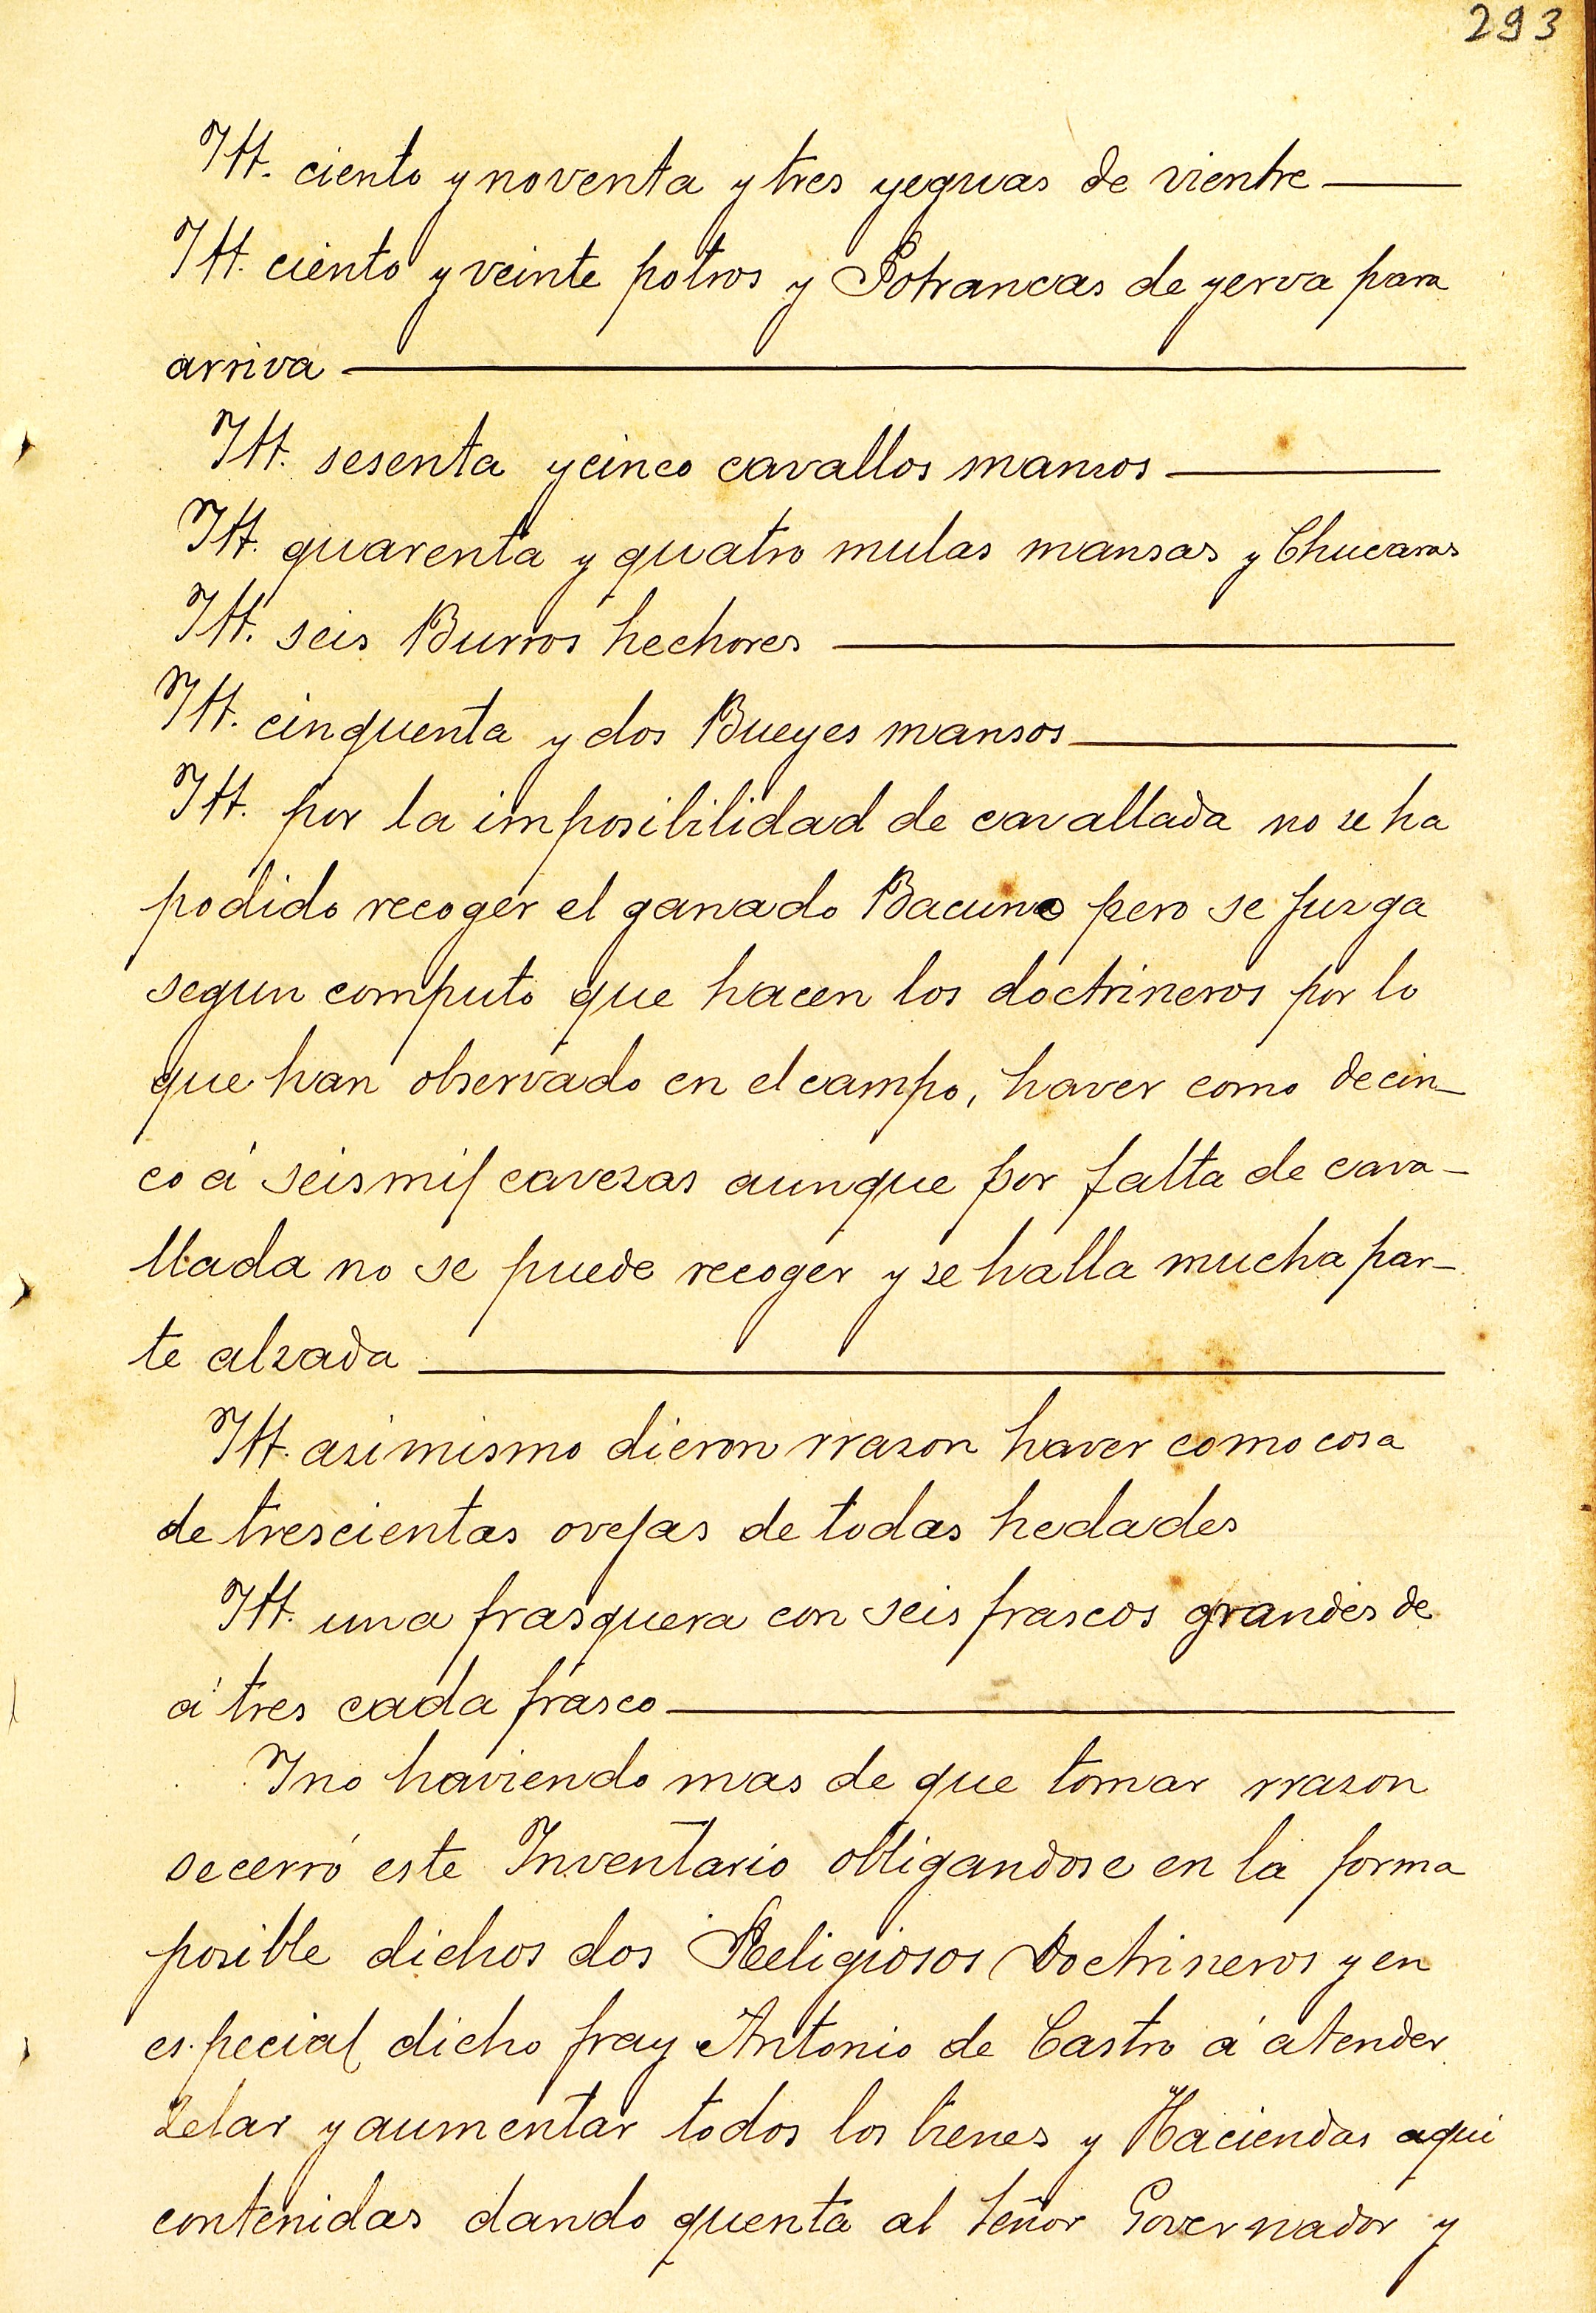 293
Itt. ciento y noventa y tres yeguas de vientre
Itt. ciento y veinte potros y Potrancas de yerva para
arriva
Itt. sesenta y cinco cavallos mansos
Itt. quarenta y quatro mulas mansas y Chucaras
Itt. seis Burros hechores
Itt. cinquenta y dos Bueyes mansos
Itt. por la imposibilidad de cavallada no se ha
podido recoger el ganado Bacuno pero se juzga
segun computo que hacen los doctrineros por lo
que han observado en el campo, haver como de cin-
co á seis mil cavezas aunque por falta de cava-
llada no se puede recoger y se halla mucha par-
te alzada
Itt. asimismo dieron rrazon haver como cosa
de trescientas ovejas de todas hedades
Itt. una frasquera con seis frascos grandes de
á tres cada frasco
I no haviendo mas de que tomar rrazon
se cerró este Inventario obligandose en la forma
posible dichos dos Religiosos Doctrineros y en
especial dicho fray Antonio de Castro á atender
Zelar y aumentar todos los bienes y Haciendas aqui
contenidas dando quenta al Señor Governador y